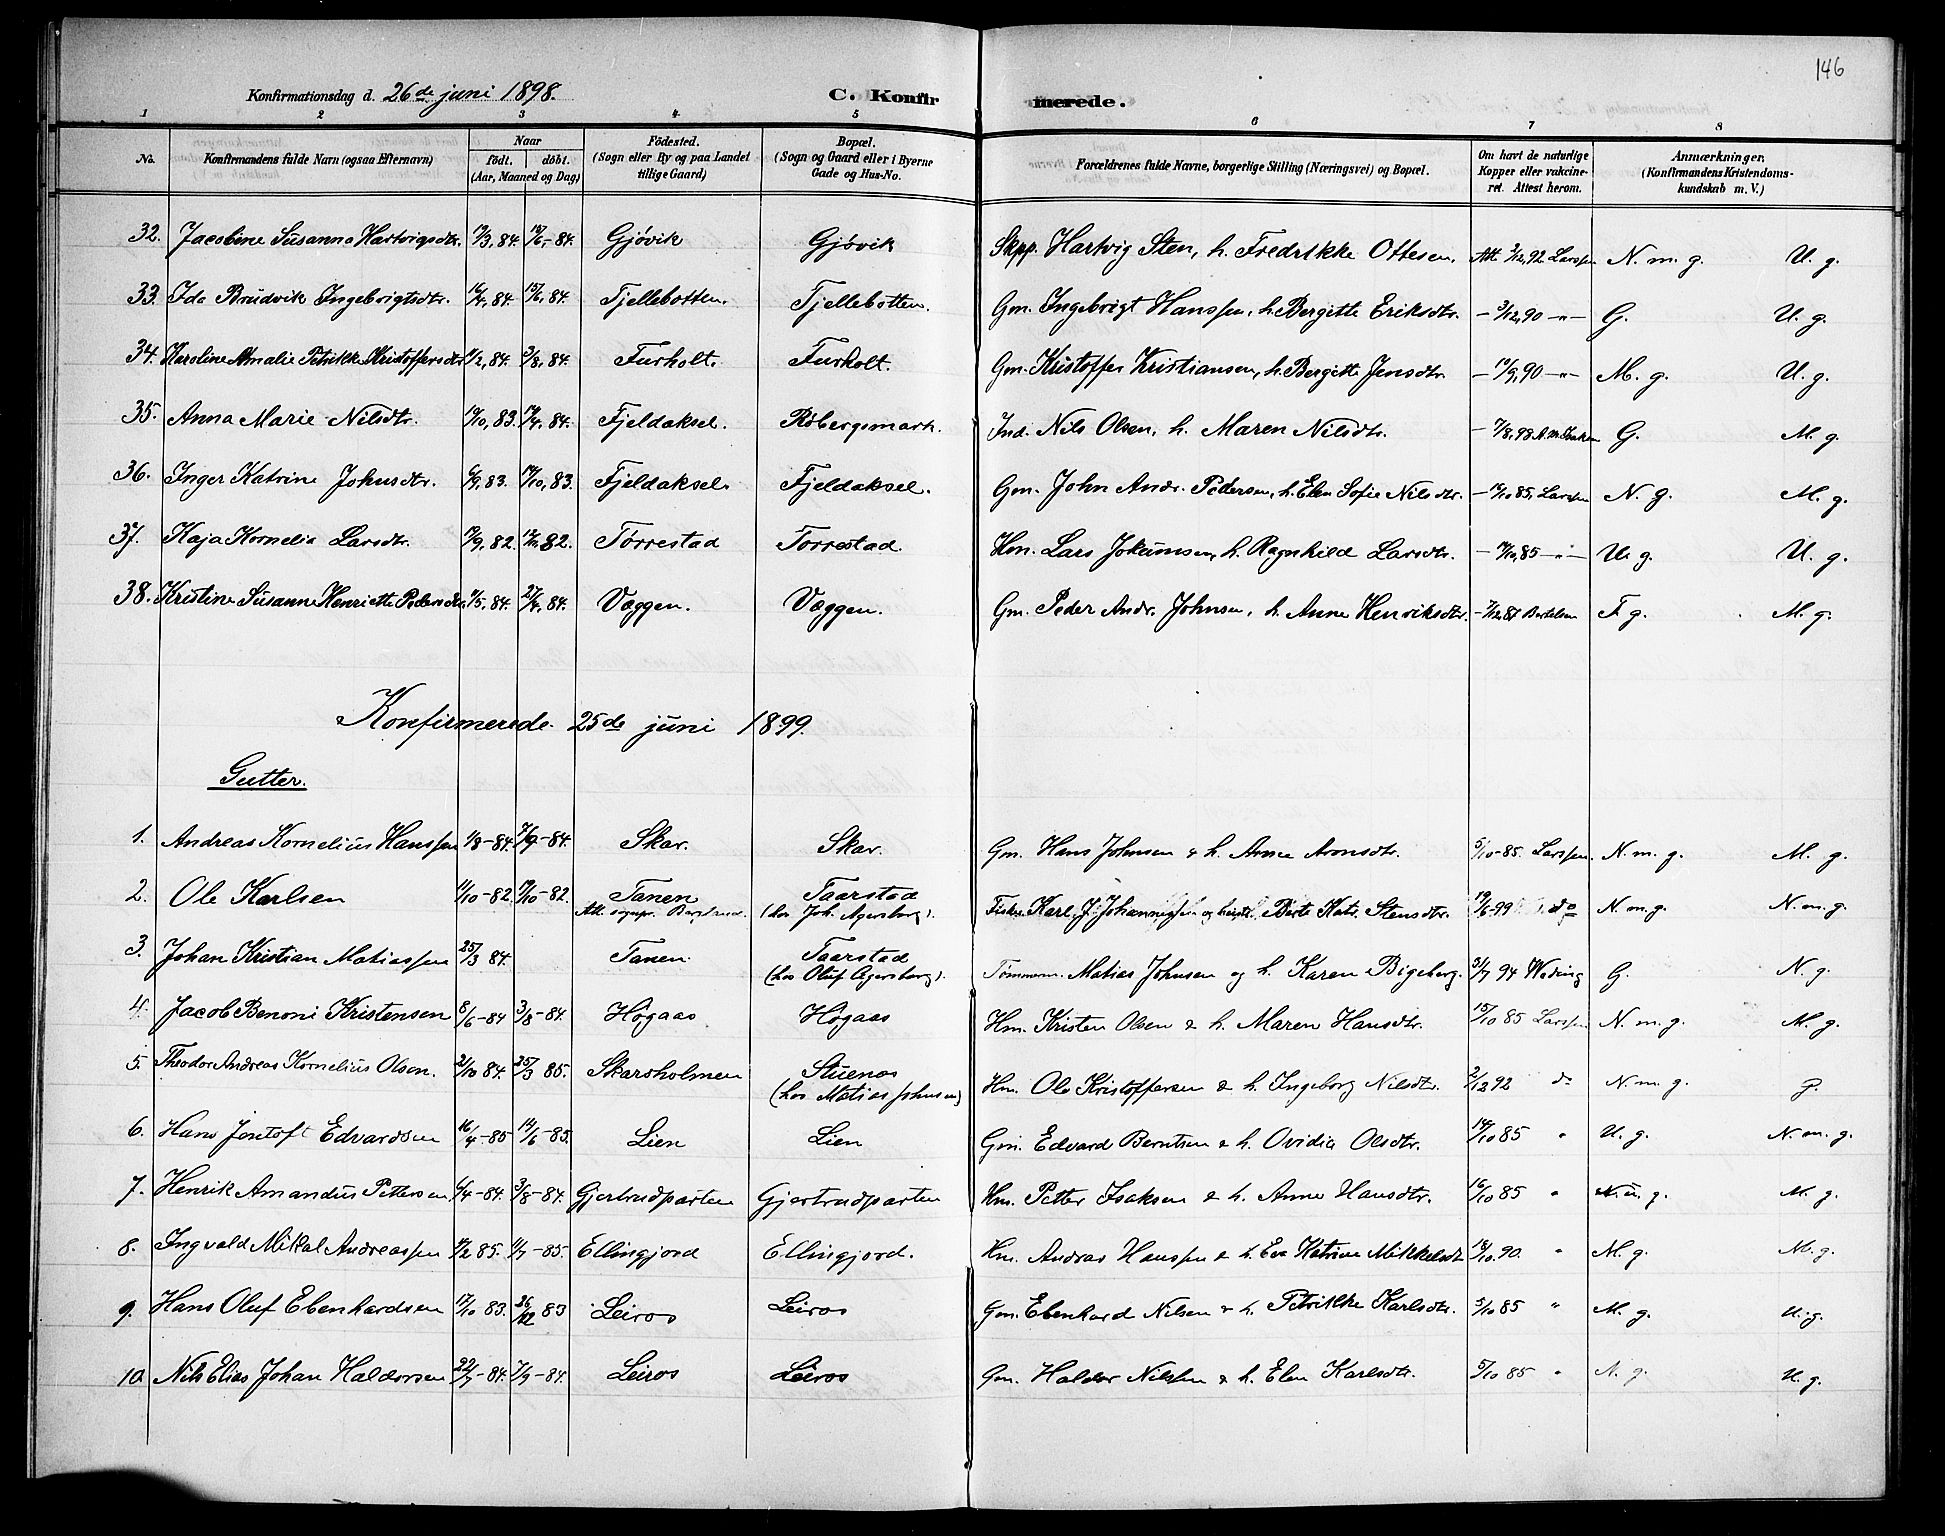 146
Konfirmationsdag d. 26de juni 1898. C. Konfirmerede.
1 2 3 4 5 6 7 8
No. Konfirmandens fulde Narn (ogsaa Efternavn) Naar födt. döbt. (Aar, Maaned og Dag) Födested. (Sogn eller By og paa Landet tillige Gaard) Bopæl. (Sogn og Gaard eller i Byerne Gade og Hus-No. Forældrenes fulde Navne, borgerlige Stilling (Næringsvei) og Bopæl. Om havt de naturlige Kopper eller vakcineret. Attest herom. Anmærkninger. (Konfirmandens Kristendomskundskab m. V.)
32. Jacobine Susanna Hartvigsdtr. Gjövik Gjövik Skpp. Hartvig Sten, h. Fredrikke Ottesen, Att. 2/12,92 Larssen N. m. g. U. g.
33. Ida Brudvik Ingebrigtsdtr. 84. 15/6,84. Fjellebotten. Fjellebotten. Gm. Ingebrigt Hanssen, h. Bergitte Eriksdtr. - 3/12,90 -"- G. U. g.
34. Karoline Amalie Petrikke Kristoffersdtr. 84. 3/8,84. Furholt. Furholt. Gm. Kristoffer Kristiansen, h. Bergitte Jensdtr. - 10/9,90 -"- M. g. U. g.
35. Anna Marie Nilsdtr. 83. 84. Fjeldaksel. Röbergsmark. Ind. Nils Olsen, h. Maren Nilsdtr. 98 G. M. g.
36. Inger Katrine Johnsdtr. 6/9,83. 83. Fjeldaksel. Fjeldaksel. Gm. John Andr. Pedersen, h. Elen Sofie Nilsdtr. 85, Larssen N. g. M. g.
37. Kaja Kornelia Larsdtr. 82. 82. Torrestad Torrestad. Hm. Lars Jokumsen, h. Ragnhild Larsdtr. 85 -"- U. g. U. g.
38. Kristine Susanne Henriette Pedersdtr. 84. 84. Væggen. Væggen. Gm. Peder Andr. Johnsen, h. Anne Henriksdtr. Bertelsen T. g. M. g.
Konfirmerede 25de juni 1899.
Gutter.
1. Andreas Kornelius Hanssen 1/8-84. 7/9-84. Skar. Skar. Gm. Hans Johnsen & h. Anne Aronsdtr. 5/10-85. Larssen. N. m. g. M. g.
2. Ole Karlsen 11/10-82 82 Tanen Taarstad Fisker Karl J. Johannessen Berte Katr. Stensdtr. 19/6-99 do N. m. g. N. m. g.
Att. (hos Joh. Agersborg).
3. Johan Kristian Matiassen 25/3 84. Tanen. Taarstad Tömmerm. Matias Johnsen og h. Karen Bigeberg. 31/7 94 Weding G. N. g.
(hos Oluf Agersborg).
4. Jacob Benoni Kristensen 8/6-84 3/8-84. Högaas Högaas Hm. Kristen Olsen & h. Maren Hansdtr. 15/10 85 Larssen N. m. g. M. g.
5. Theodor Andreas Kornelius Olsen. 21/10 84. 25/3 85. Skarsholmen Stuenes Hm. Ole Kristoffersen & h. Ingeborg Nilsdtr. 2/12 92 do N. m. g. g.
(hos Matias Johnsen)
6. Hans Jentoft Edvardsen 16/4-85 14/6-85. Lien Lien Gm. Edvard Berntsen & h. Ovidia Olsdtr. 14/10 85 " U. g. N. m. g.
7. Henrik Amandus Pettersen 6/4-84. 3/8-84. Gjertrudparten Gjertrudparten Hm. Petter Isaksen & h. Anne Hansdtr. 16/10 85 " M. g.
8. Ingvald Mikal Andreassen 85. 85. Ellingjord Ellingjord. Hm. Andreas Hanssen & h. Eva Katrine Mikkelsdt 18/10.90. " M. g. M. g.
9. Hans Oluf Ebenhardsen 17/10 83. 26/12 83 Leiros Leiros Gm. Ebenhard Nilsen & h. Petrikke Karlsdtr. 5/10 85 " M. g. U. g.
10. Nils Elias Johan Haldorsen 22/7-84. 7/9-84. Leiros Leiros Gm. Haldor Nilssen & h. Elen Karlsdtr. 5/10 85 " N. g. U. g.